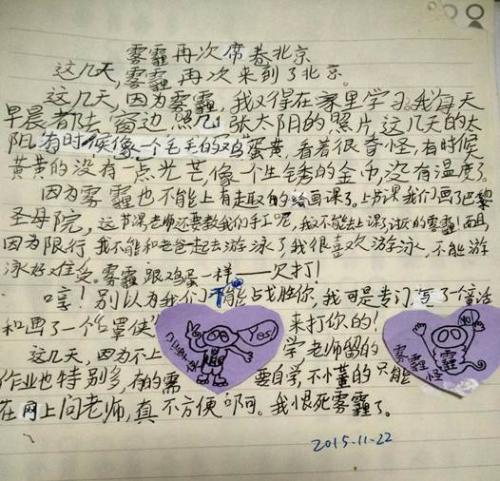 雾霾再次席卷北京
这几天,雾霾再次来到了北京。
这几天,因为雾霾,我又得在家里学习。我每天
早晨都在窗边照几张太阳的照片,这几天的太
阳有时候像一个毛毛的鸡蛋黄,看着很奇怪,有时候
黄黄的没有一点光芒,像个生锈的金币,没有温度了。
因为雾霾也不能上有趣的绘画课了。上节课我们画了巴黎
圣母院,这节课老师还要教我们手工呢,我又不能去上课了,讨厌的雾霾!而且
因为限行我不能和老爸一起去游泳了,我很喜欢游泳,不能游
泳好难受。雾霾跟鸡蛋一样——欠打!
哼!别以为我们不能战胜你,我可是专门写了个童话
和画了一个“口罩侠”来打你的!
这几天,因为不上学老师留的
作业也特别多,有的需要自学,不懂的只能
在网上问老师,真不方便啊。我恨死雾霾了。
2015.11.22
口罩侠
Yes!
雾霾
霾
怪